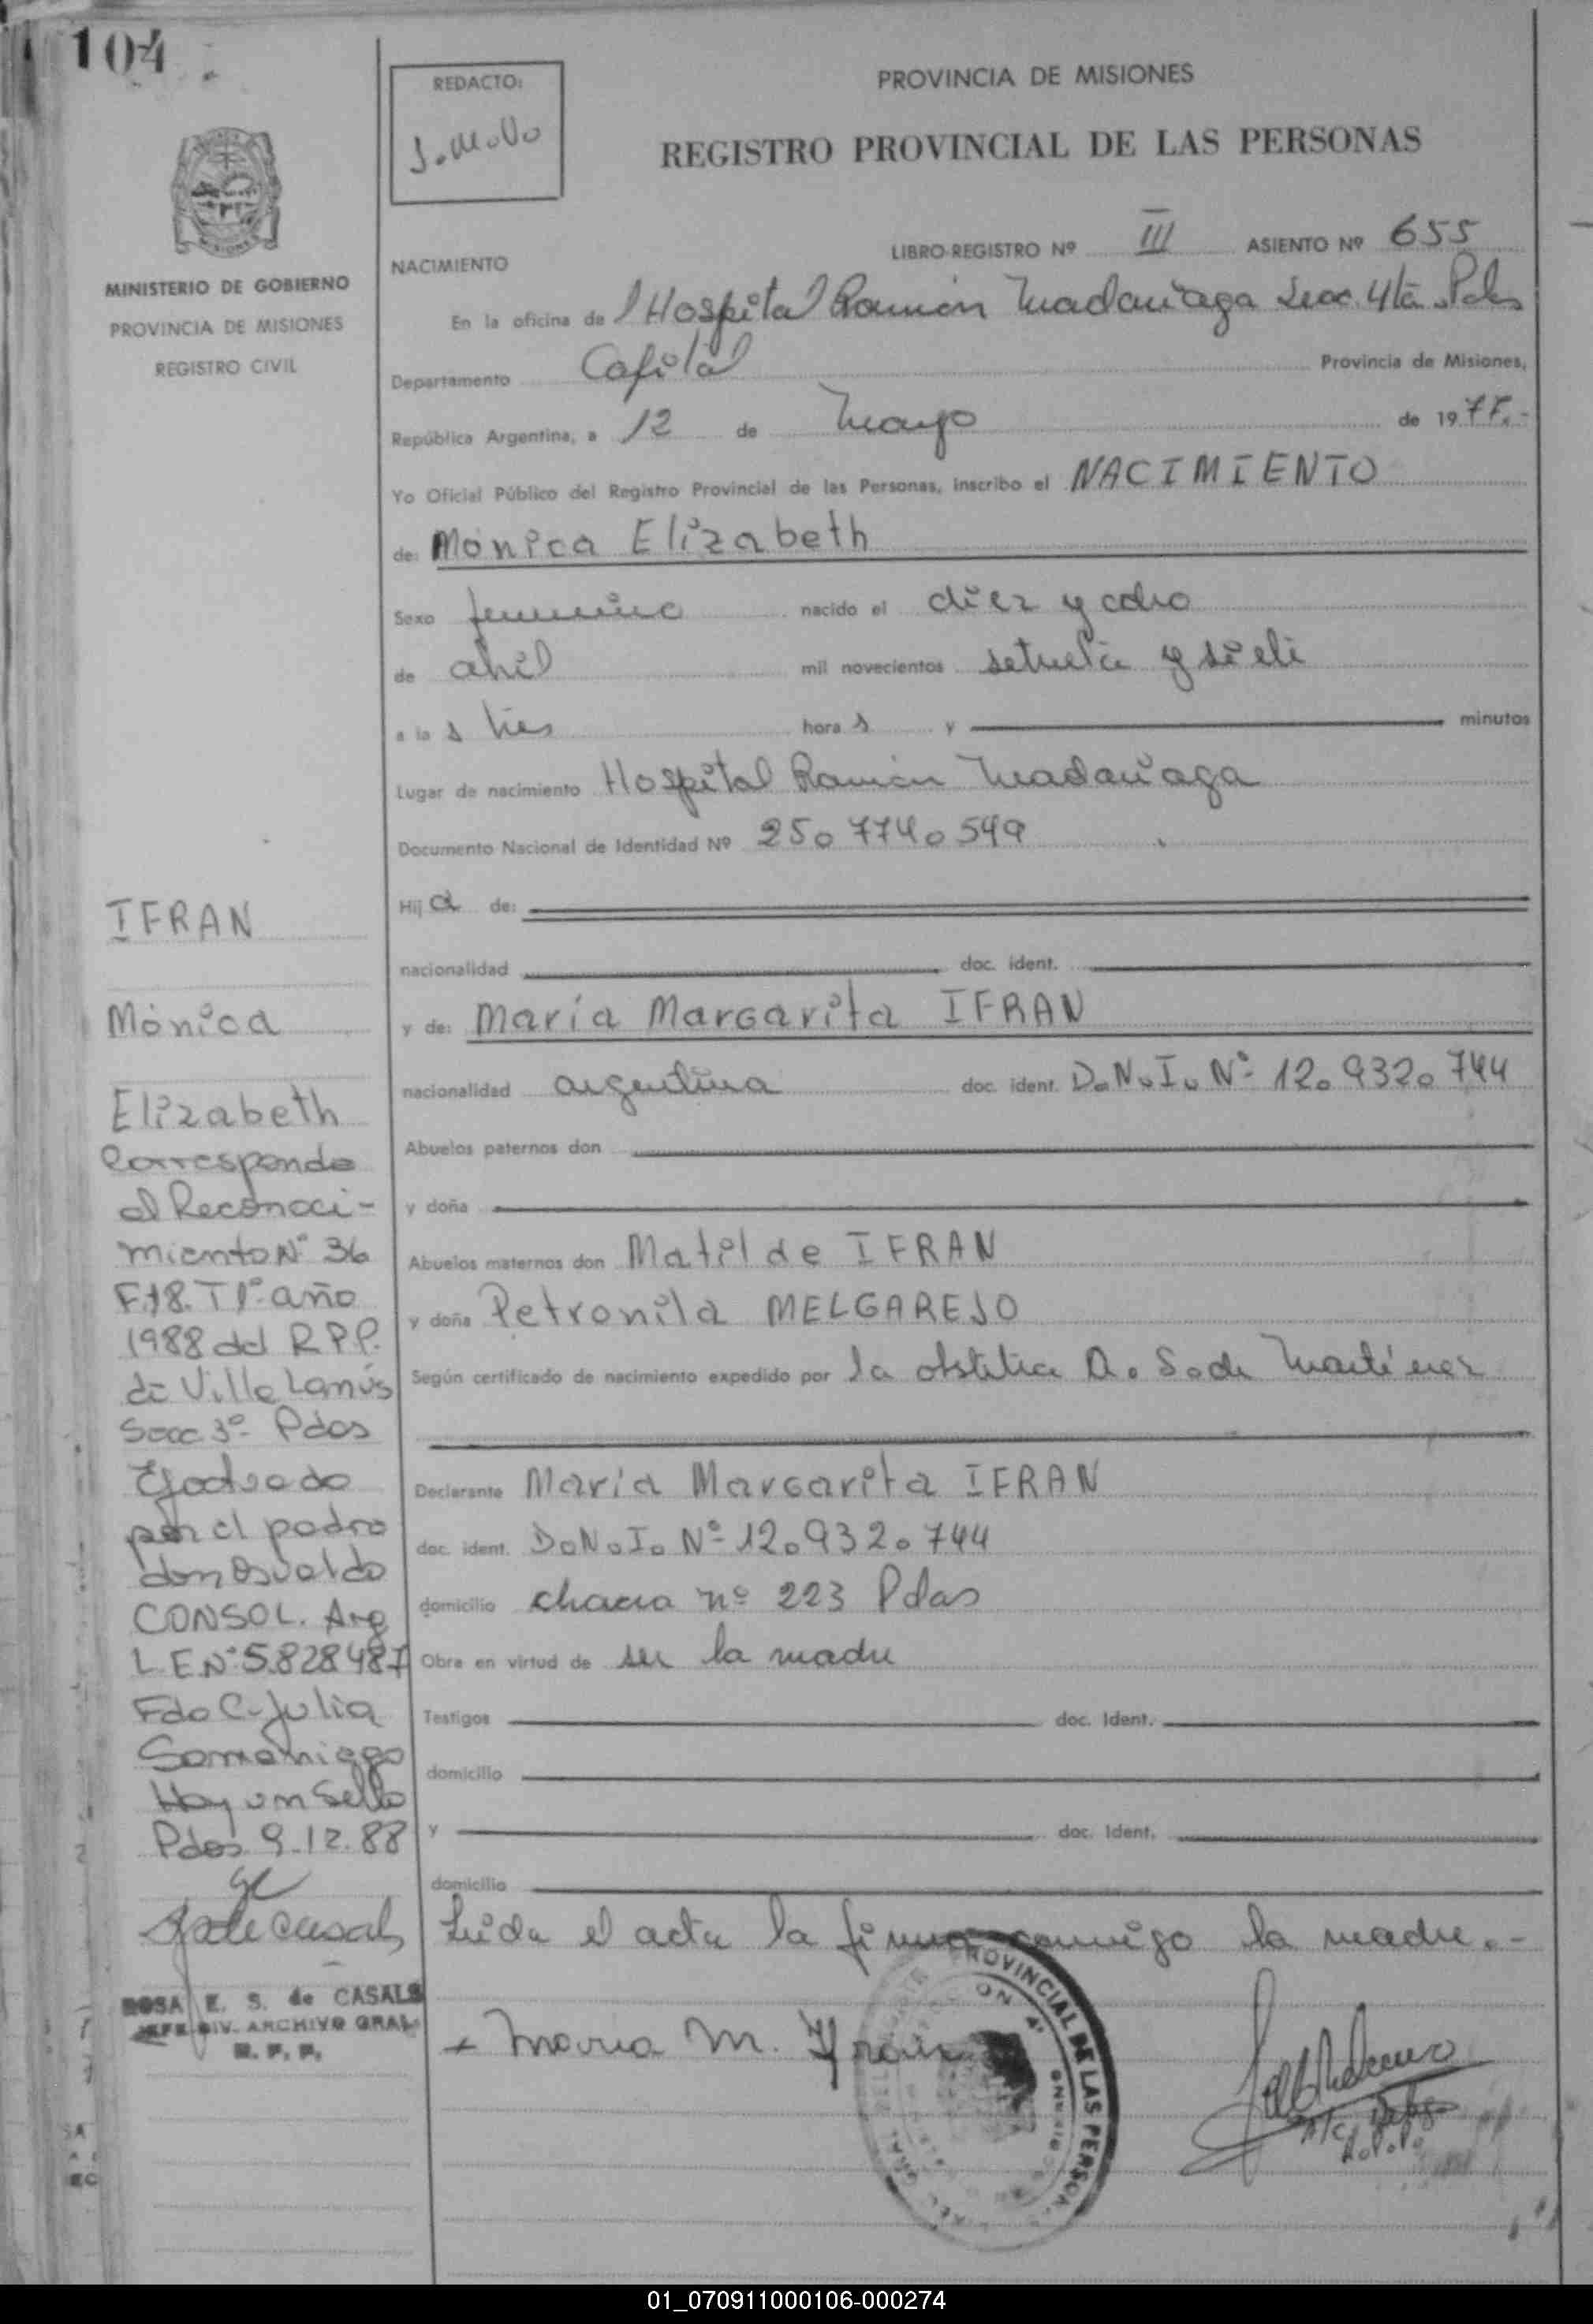 104
REDACTO:
J. Mollo
PROVINCIA DE MISIONES
REGISTRO PROVINCIAL DE LAS PERSONAS
MINISTERIO DE GOBIERNO
PROVINCIA DE MISIONES
REGISTRO CIVIL
NACIMIENTO
LIBRO-REGISTRO Nº III ASIENTO Nº 655
En la oficina de l Hospital Ramón Madariaga Secc. 4ta Pdas
Departamento Capital Provincia de Misiones,
República Argentina, a 12 de Mayo de 1977.-
Yo Oficial Público del Registro Provincial de las Personas, inscribo el NACIMIENTO
de: Mónica Elizabeth
Sexo femenino nacido el diez y ocho
de abril mil novecientos setenta y siete
a la s tres hora s y minutos
Lugar de nacimiento Hospital Ramón Madariaga
Documento Nacional de Identidad Nº 25.774.549
Hij a de:
nacionalidad doc. ident.
y de: María Margarita IFRAN
nacionalidad argentina doc. ident. D.N.I. Nº 12.932.744
Abuelos paternos don
y doña
Abuelos maternos don Matilde IFRAN
y doña Petronila MELGAREJO
Según certificado de nacimiento expedido por la obstetra A. S. de Martínez
Declarante María Margarita IFRAN
doc. ident. D.N.I. Nº 12.932.744
domicilio chacra nº 223 Pdas
Obra en virtud de ser la madre
Testigos doc. Ident.
domicilio
y doc. Ident.
domicilio
Leída el acta la firma conmigo la madre.-
Maria M. Ifran
PROVINCIAL DE LAS PERSONAS
IFRAN
Mónica
Elizabeth
Corresponde
al Reconoci-
miento Nº 36
F 18. T 1º año
1988 del R.P.P.
de Villa Lanús
Secc 3º Pdas
Efectuado
por el padre
don Osvaldo
CONSOL. Arg
L.E Nº 5.828487
Fdo C. Julia
Samaniego
Hay un Sello
Pdas 9.12.88
ROSA E. S. de CASALS
JEFE DIV. ARCHIVO GRAL.
R. P. P.
01_070911000106-000274